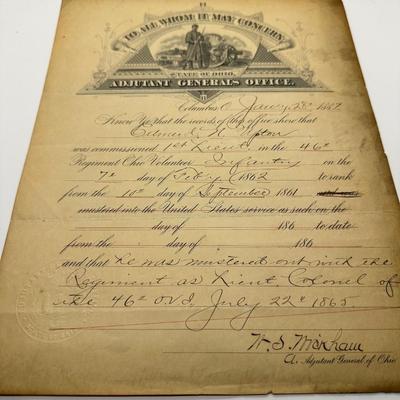 TO ALL WHOM IT MAY CONCERN
STATE OF OHIO,
ADJUTANT GENERAL'S OFFICE.
Columbus O. Jan'y 28" 1887
Know Ye that the records of this office show that
Edmund N. Upton
was commissioned 1st Lieut in the 46"
Regiment Ohio Volunteer Infantry on the
7" day of Feb'y 1862 to rank
from the 10" day of September 1861
mustered into the United States service as such on the
day of 186 to date
from the day of 186
and that he was mustered out with the
Regiment as Lieut. Colonel of
the 46" O.V.I. July 22" 1865
A. Adjutant General, of Ohio